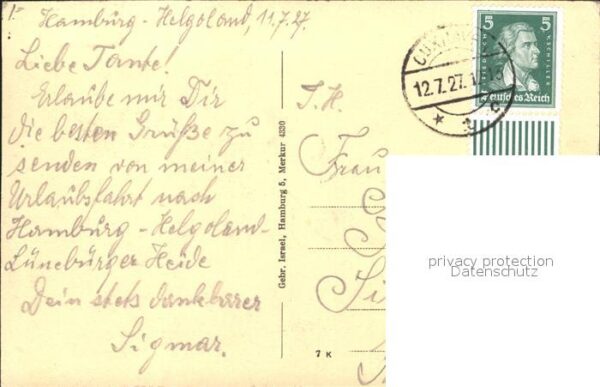 Hamburg - Helgoland, 11.7.27.
Liebe Tante!
Erlaube mir Dir
die besten Grüße zu
senden von meiner
Urlaubsfahrt nach
Hamburg - Helgoland-
Lüneburger Heide
Dein stets dankbarer
Sigmar.
Gebr. Israel, Hamburg 5, Merkur 4330
7 K
5 5
FRIEDRICH
Deutsches Reich
12.7.27.
T. H.
Frau
privacy protection
Datenschutz